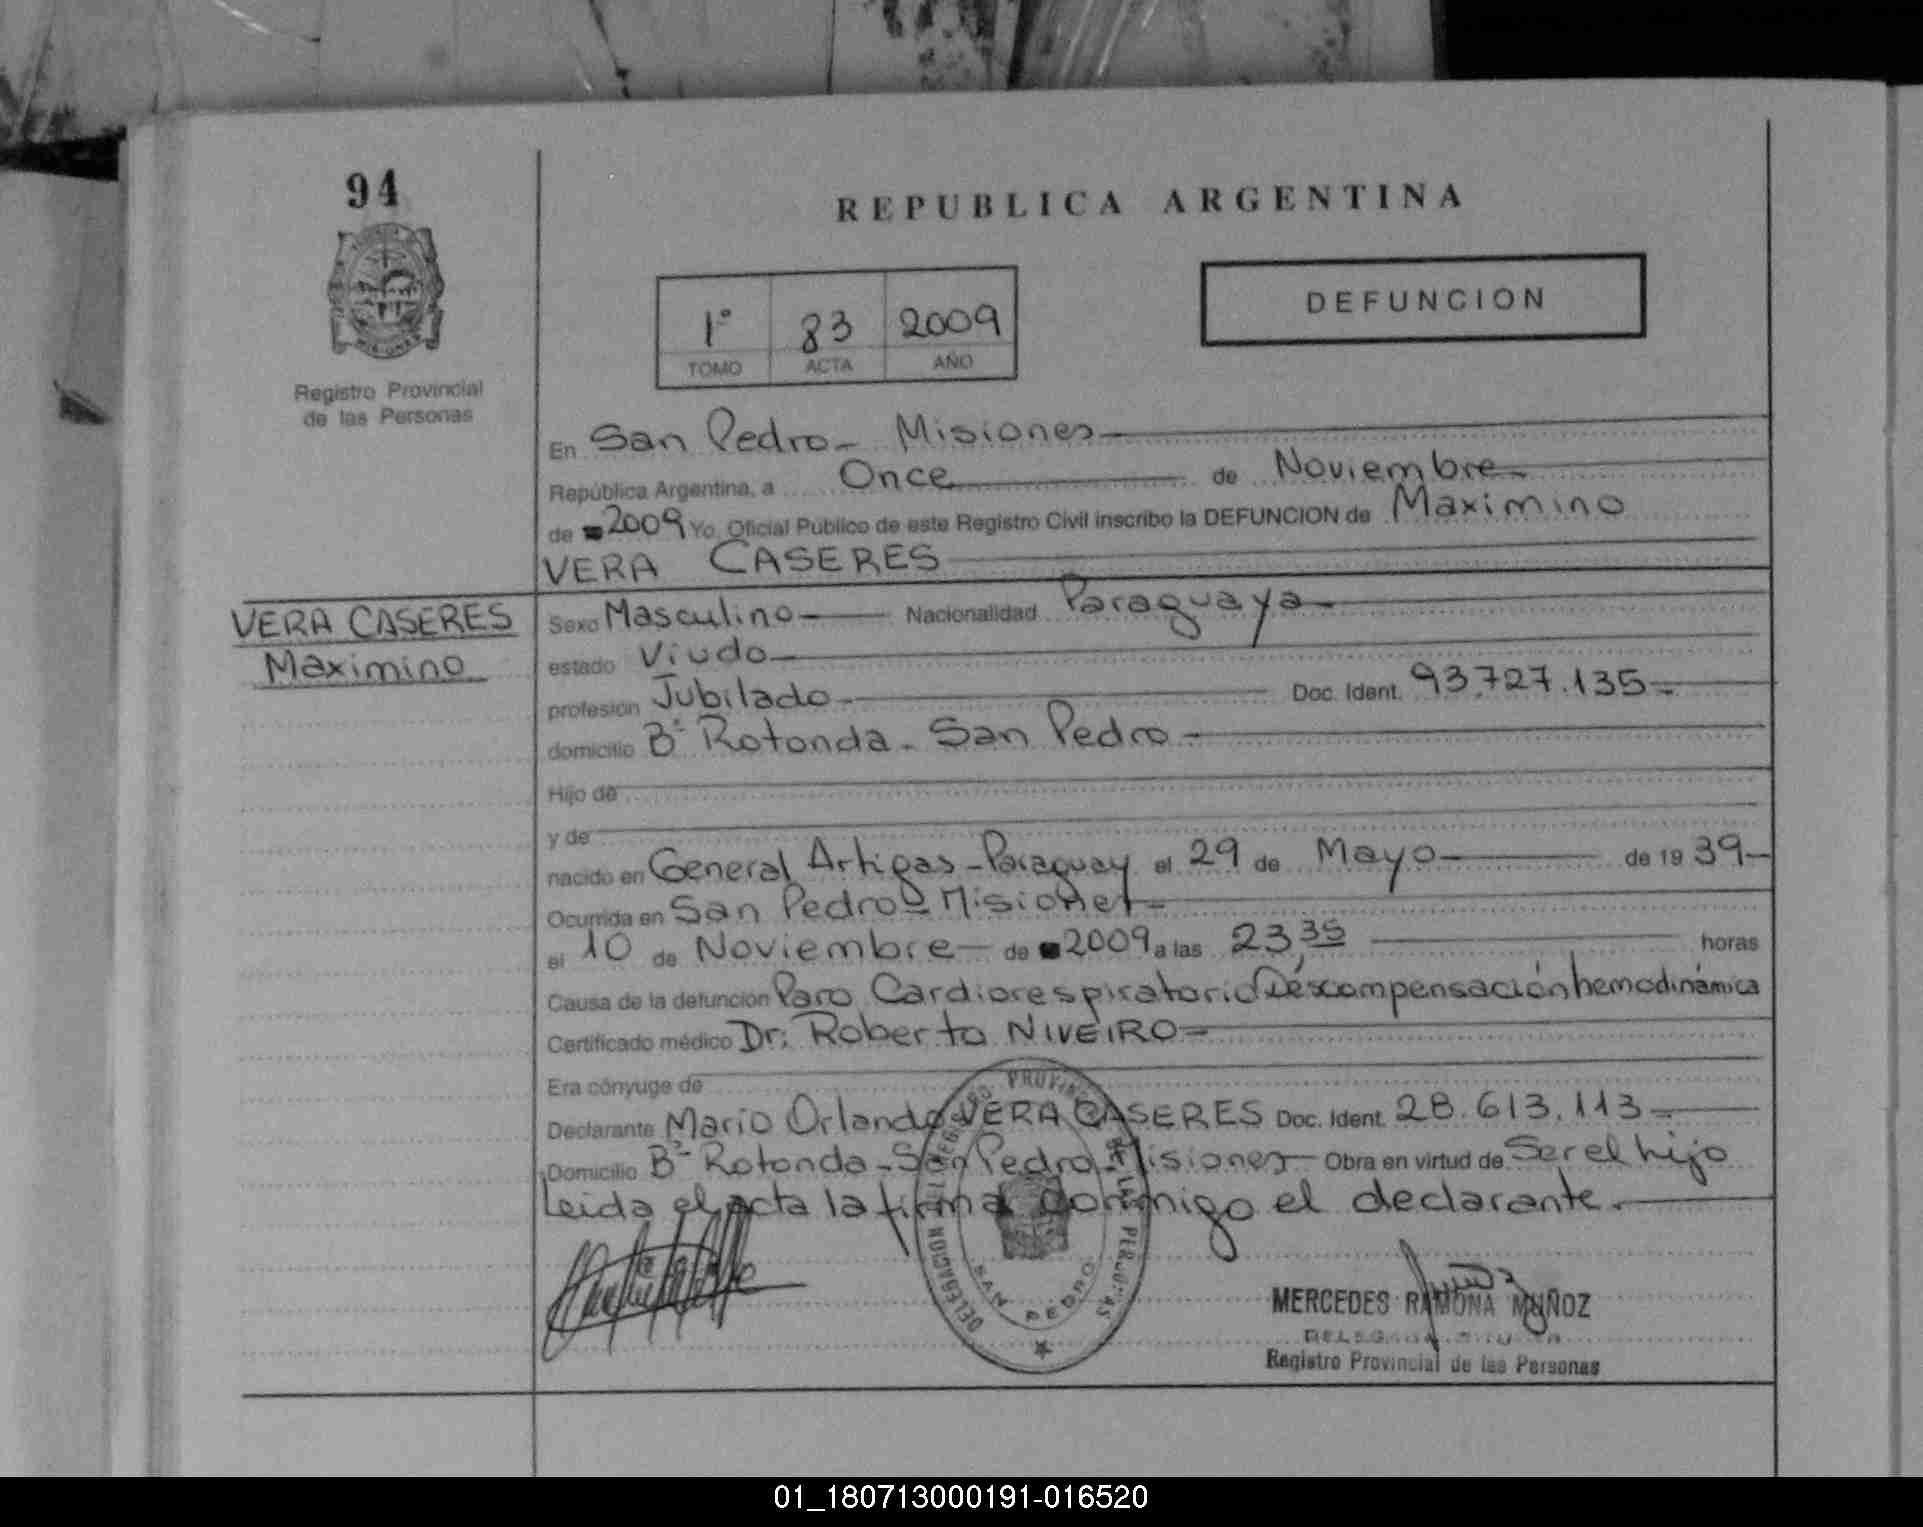 94
REPUBLICA ARGENTINA
1º 83 2009
TOMO ACTA AÑO
DEFUNCION
Registro Provincial
de las Personas
En San Pedro - Misiones
República Argentina, a Once de Noviembre
de 2009 Yo, Oficial Público de este Registro Civil inscribo la DEFUNCION de Maximino
VERA CASERES
VERA CASERES
Maximino
Sexo Masculino Nacionalidad Paraguaya
estado Viudo
profesión Jubilado Doc. Ident. 93.727.135
domicilio Bº Rotonda - San Pedro
Hijo de
y de
nacido en General Artigas - Paraguay el 29 de Mayo de 19 39
Ocurrida en San Pedro - Misiones
el 10 de Noviembre de 2009 a las 23,35 horas
Causa de la defunción Paro Cardiorespiratorio Descompensación hemodinámica
Certificado médico Dr: Roberto NIVEIRO
Era cónyuge de
Declarante Mario Orlando VERA CASERES Doc. Ident. 28.613.113
Domicilio Bº Rotonda - San Pedro - Misiones Obra en virtud de Ser el hijo
Leida el acta la firma conmigo el declarante.
SAN PEDRO
MERCEDES RAMONA MUÑOZ
Registro Provincial de las Personas
01_180713000191-016520